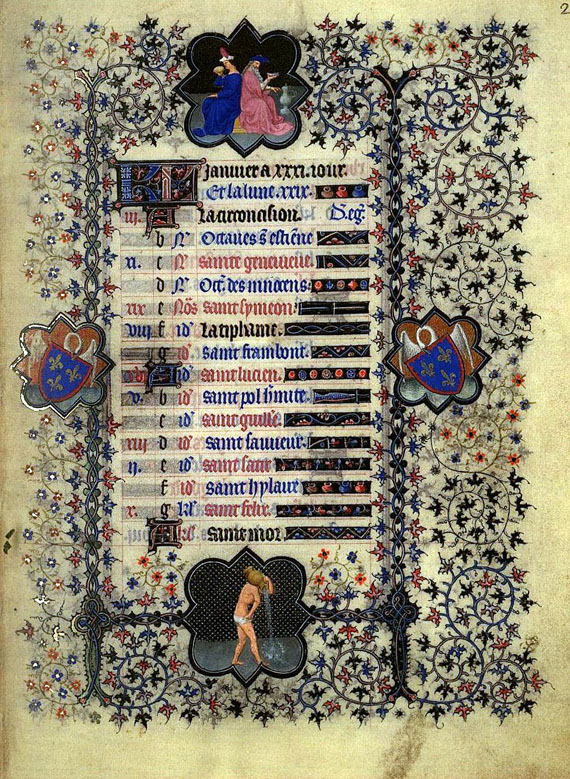 2
KL Janvier a xxxi. jour.
Et la lune. xxx.
iii. A La circoncision. D. eg.
b N̄ Octaves s. estiene
xi. c N̄ sainte genevieve.
d N̄ Oct. des innocens.
xix e Nōs saint symeon.
viii f id La tiphaine.
g id saint frambout.
xvi A id saint lucien.
v. b id saint pol hmite.
c id saint guille.
xiii d id saint sauveur.
ii. e id saint satir
f id saint hylaire
x. g kl saint felix.
A kl saint mor.